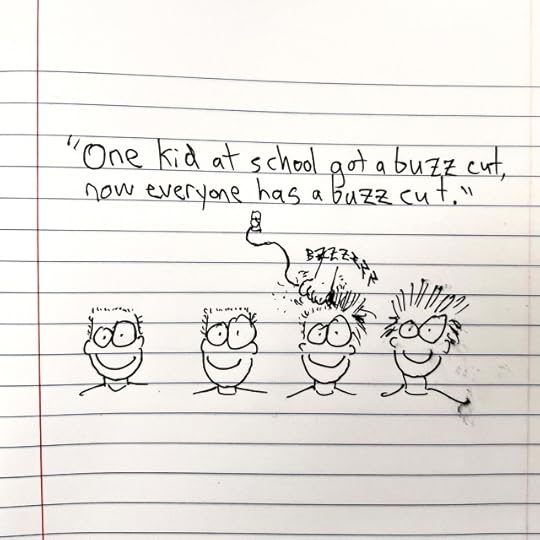 "One kid at school got a buzz cut,
now everyone has a buzz cut."
BZZZZZZZ